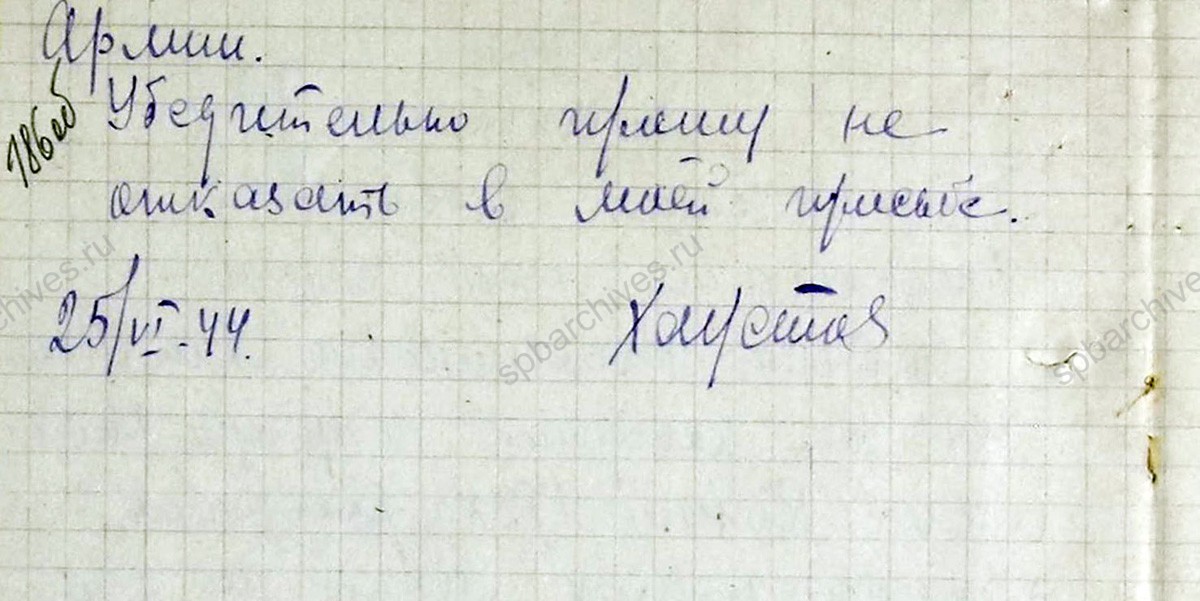 Армии.
186об
Убедительно прошу не
отказать в моей просьбе.
25/VI-44.
Хаустов
spbarchives.ru
spbarchives.ru
spbarchives.ru